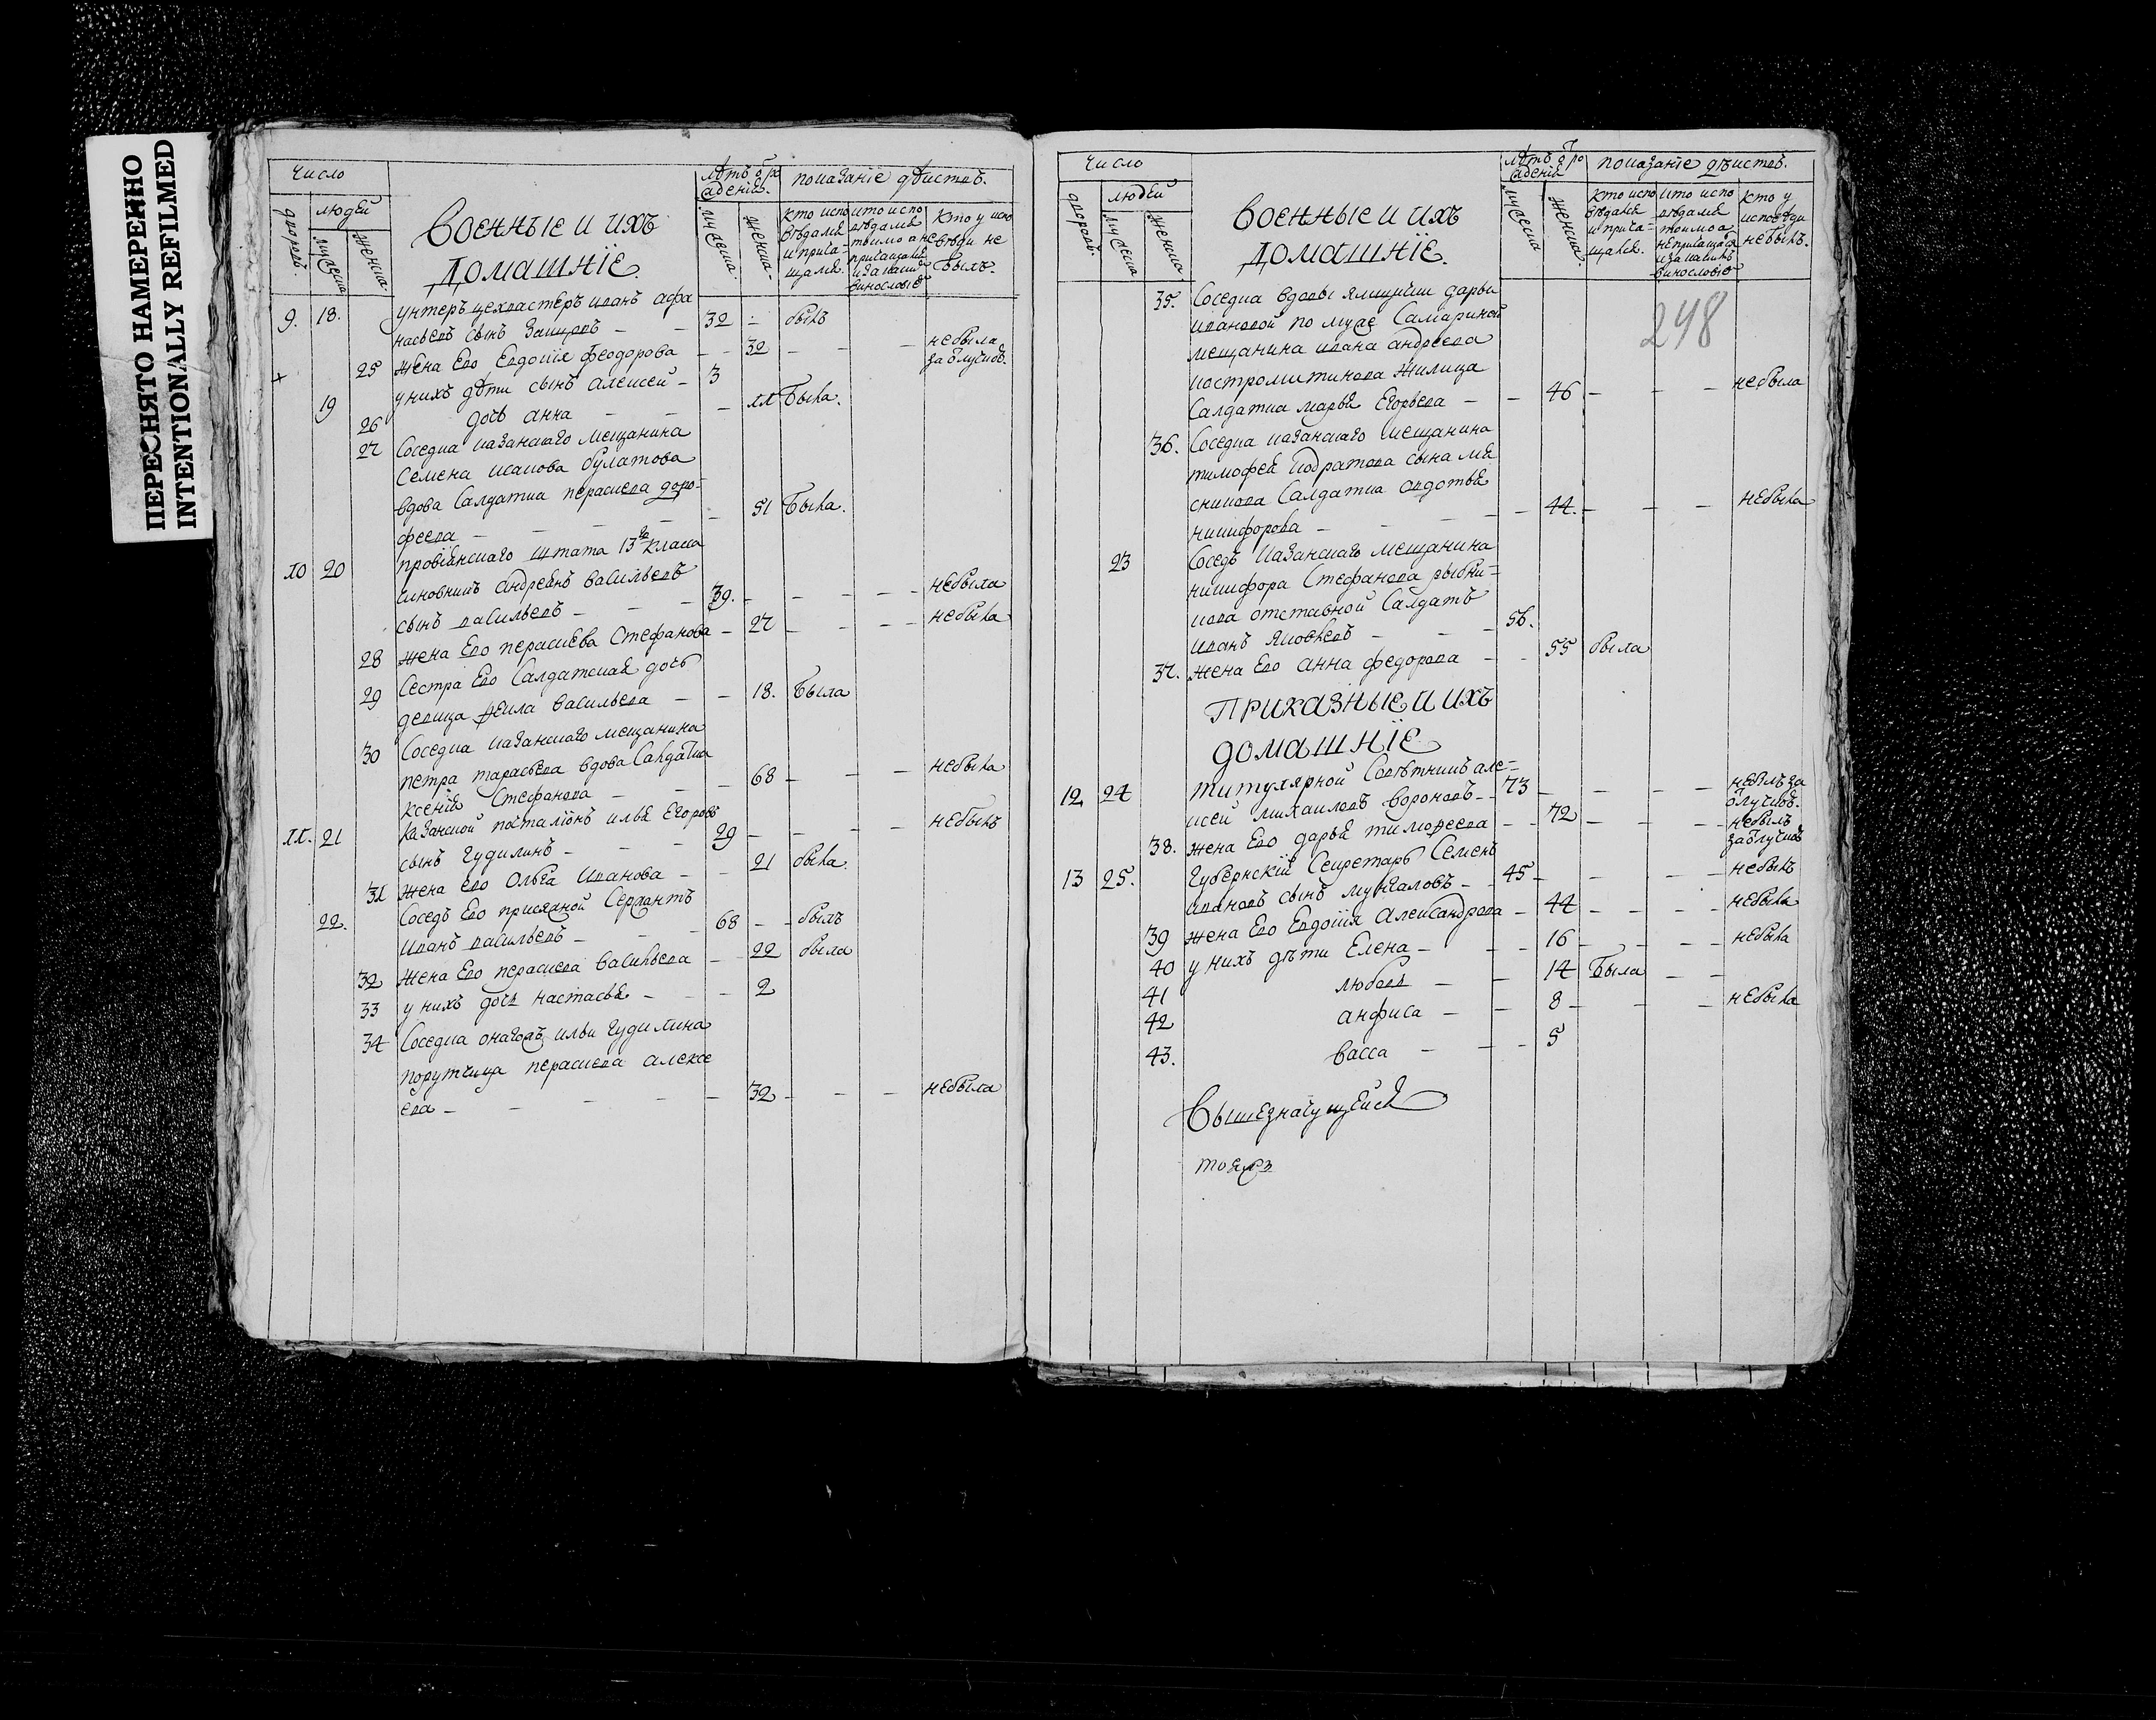 ПЕРЕСНЯТО НАМЕРЕННО
INTENTIONALLY REFILMED
число
дворовъ
людей
мужеска
женска
военные и ихъ
домашніе
лѣтъ ѿ ро
жденія
мужеска
женска
показаніе дѣйствъ.
кто испо
вѣдался
и прича-
щался
кто испо
вѣдался
токмо а не
причащался
и за какимъ
винословіемъ
кто у испо
вѣди не
былъ.
9. 18. унтеръ цехвастеръ иванъ афа
насьевъ сынъ 32 – былъ
25 жена Ево Евдокія феодорова – – 32 – – – не была
за ѿлучкой.
19 у нихъ дѣти сынъ алексей – 3
26 дочь анна – – – 11 была.
27 Соседка казанскаго мещанина
Семена исакова булатова
вдова Салдатка пераскева доро-
феева – – – – – 51 была.
10 20 провіянскаго штата 13го класа
чиновникъ андреянъ васильевъ
сынъ васильевъ – – – 39. – – – – – не была
28 жена Ево пераскева Стефанова – 27 – – – – не была
29 Сестра Ево Салдатская дочь
девица фекла васильева – – 18. была
30 Соседка казанскаго мещанина
петра тарасьева вдова Салдатка
ксенія Стефанова – – – 68 – – – не была
11. 21 казанской посталіонъ илья Егоровъ
сынъ чудилинъ – – – 29 – – – – не былъ
31 жена Ево Ольга Иванова – – 21 была.
22. Соседъ Ево присяжной Сержантъ
иванъ васильевъ – – – 68 – – былъ
32 жена Ево пераскева васильева – – 22 была
33 у нихъ дочь настасья – – – 2
34 Соседка онагожъ ильи чудилина
порутчица пераскева алексе
ева – – – – – 32 – – – не была
число
дворовъ.
людей
мужеска
женска
военные и ихъ
домашніе.
лѣтъ ѿ ро
жденія
мужеска
женска.
показаніе дѣйствъ.
кто испо
вѣдался
и прича-
щался.
кто испо
вѣдался
токмо а
не причащался
и за какимъ
винословіемъ
кто у
исповѣди
не былъ.
248
35. Соседка вдовы ямщички дарьи
ивановой по муже Самариной
мещанина ивана андреева
костромитинова жилица
Салдатка марья Егорьева – – 46 – – – не была
36. Соседка казанскаго мещанина
тимофея Кодратова сына мя
сникова Салдатка авдотья
никифорова – – – – – 44. – – – не была
23 Соседъ казанскаго мещанина
никифора Стефанова рыбни-
кова отставной Салдатъ
иванъ яковлевъ – – – 56.
37. жена Ево анна федорова – – 55 была
Приказные и ихъ
домашніе
12 24 титулярной Советникъ але-
ксей михаиловъ вороновъ – – 73 – – – – не былъ за
ѿлучкой.
38. жена Ево дарья тимофеева – – 72 – – – – не былъ
за ѿлучкой
13 25. Губернскій Секретарь Семенъ
ивановъ сынъ мунгаловъ – – 45 – – – – не былъ
39 жена Ево Евдокія Александрова – 44 – – – – не была
40 у нихъ дѣти Елена – – – 16 – – – – не была
41 любовь – – 14 была – –
42 анфиса – – 8 – – – не была
43. васса – – – 5